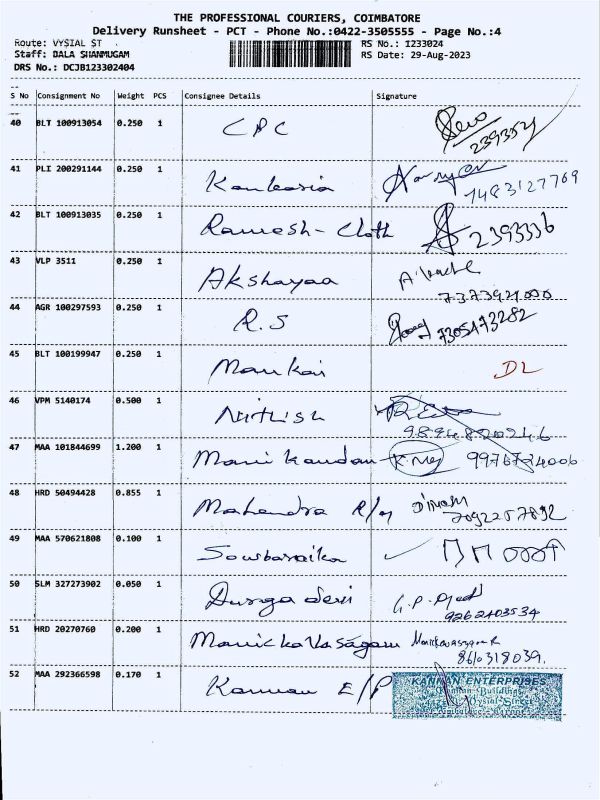 THE PROFESSIONAL COURIERS, COIMBATORE
Delivery Runsheet - PCT - Phone No.:0422-3505555 - Page No.:4
Route: VYSIAL ST RS No.: 1233024
Staff: BALA SHANMUGAM RS Date: 29-Aug-2023
DRS No.: DCJB123302404
S No Consignment No Weight PCS Consignee Details Signature
40 BLT 100913054 0.250 1 CPC 2393554
41 PLI 200291144 0.250 1 7483127769
42 BLT 100913035 0.250 1 Ramesh-Cloth 2393336
43 VLP 3511 0.250 1 Akshayaa
7373921000
44 AGR 100297593 0.250 1 R.S 7305473282
45 BLT 100199947 0.250 1 DL
46 VPM 5140174 0.500 1 Nithish
9894820246
47 MAA 101844699 1.200 1 Mani kandan
48 HRD 50494428 0.855 1 Mahendra
7092257892
49 MAA 570621808 0.100 1
50 SLM 327273902 0.050 1 Durga devi
9262403534
51 HRD 20270760 0.200 1 Manickavasagam
8610318039.
52 MAA 292366598 0.170 1 Kannan E/P KANNAN ENTERPRISES
Kannan Buildings
Vysial Street